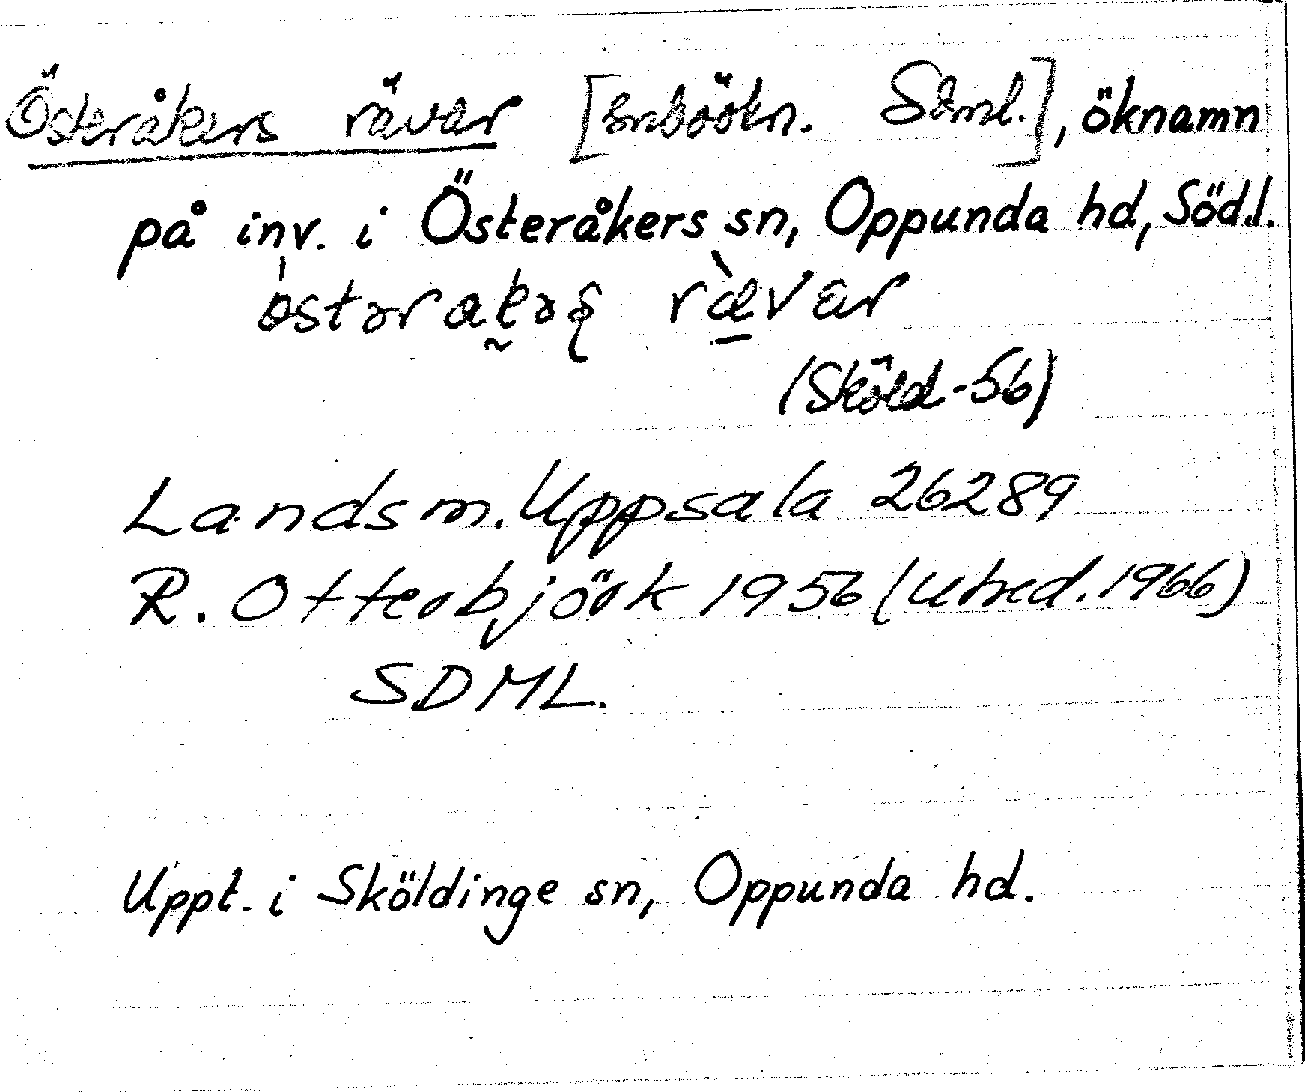 Österåkers rävar [Snböökn. Saml.], öknamn
på inv. i Österåkers sn, Oppunda hd, Söd.l.
rä̀var
(Sköld-56)
Landsm. Uppsala 26289
R. Otterbjörk 1956 (utred. 1966)
SDML.
Uppt. i Sköldinge sn, Oppunda hd.